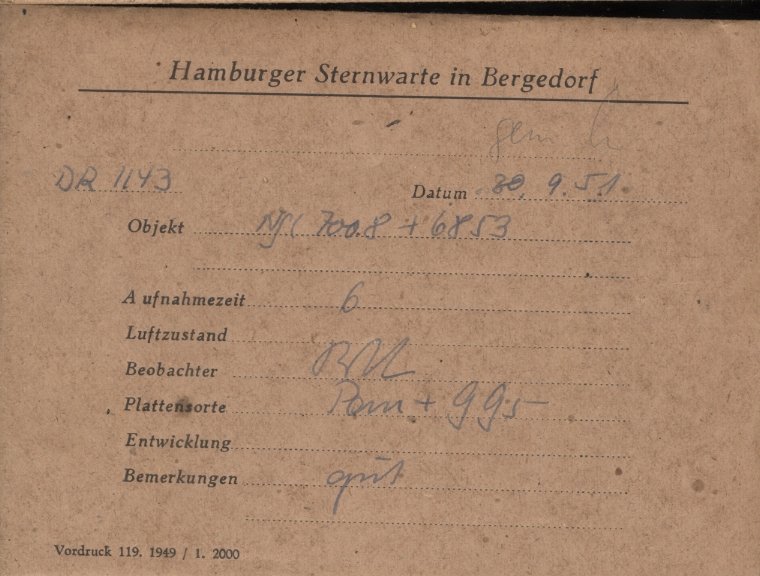 Hamburger Sternwarte in Bergedorf
DR 1143
Datum 30. 9. 51.
Objekt NGC 7008 + 6853
Aufnahmezeit 6
Luftzustand
Beobachter
Plattensorte + 995
Entwicklung
Bemerkungen gut
Vordruck 119. 1949 / 1. 2000